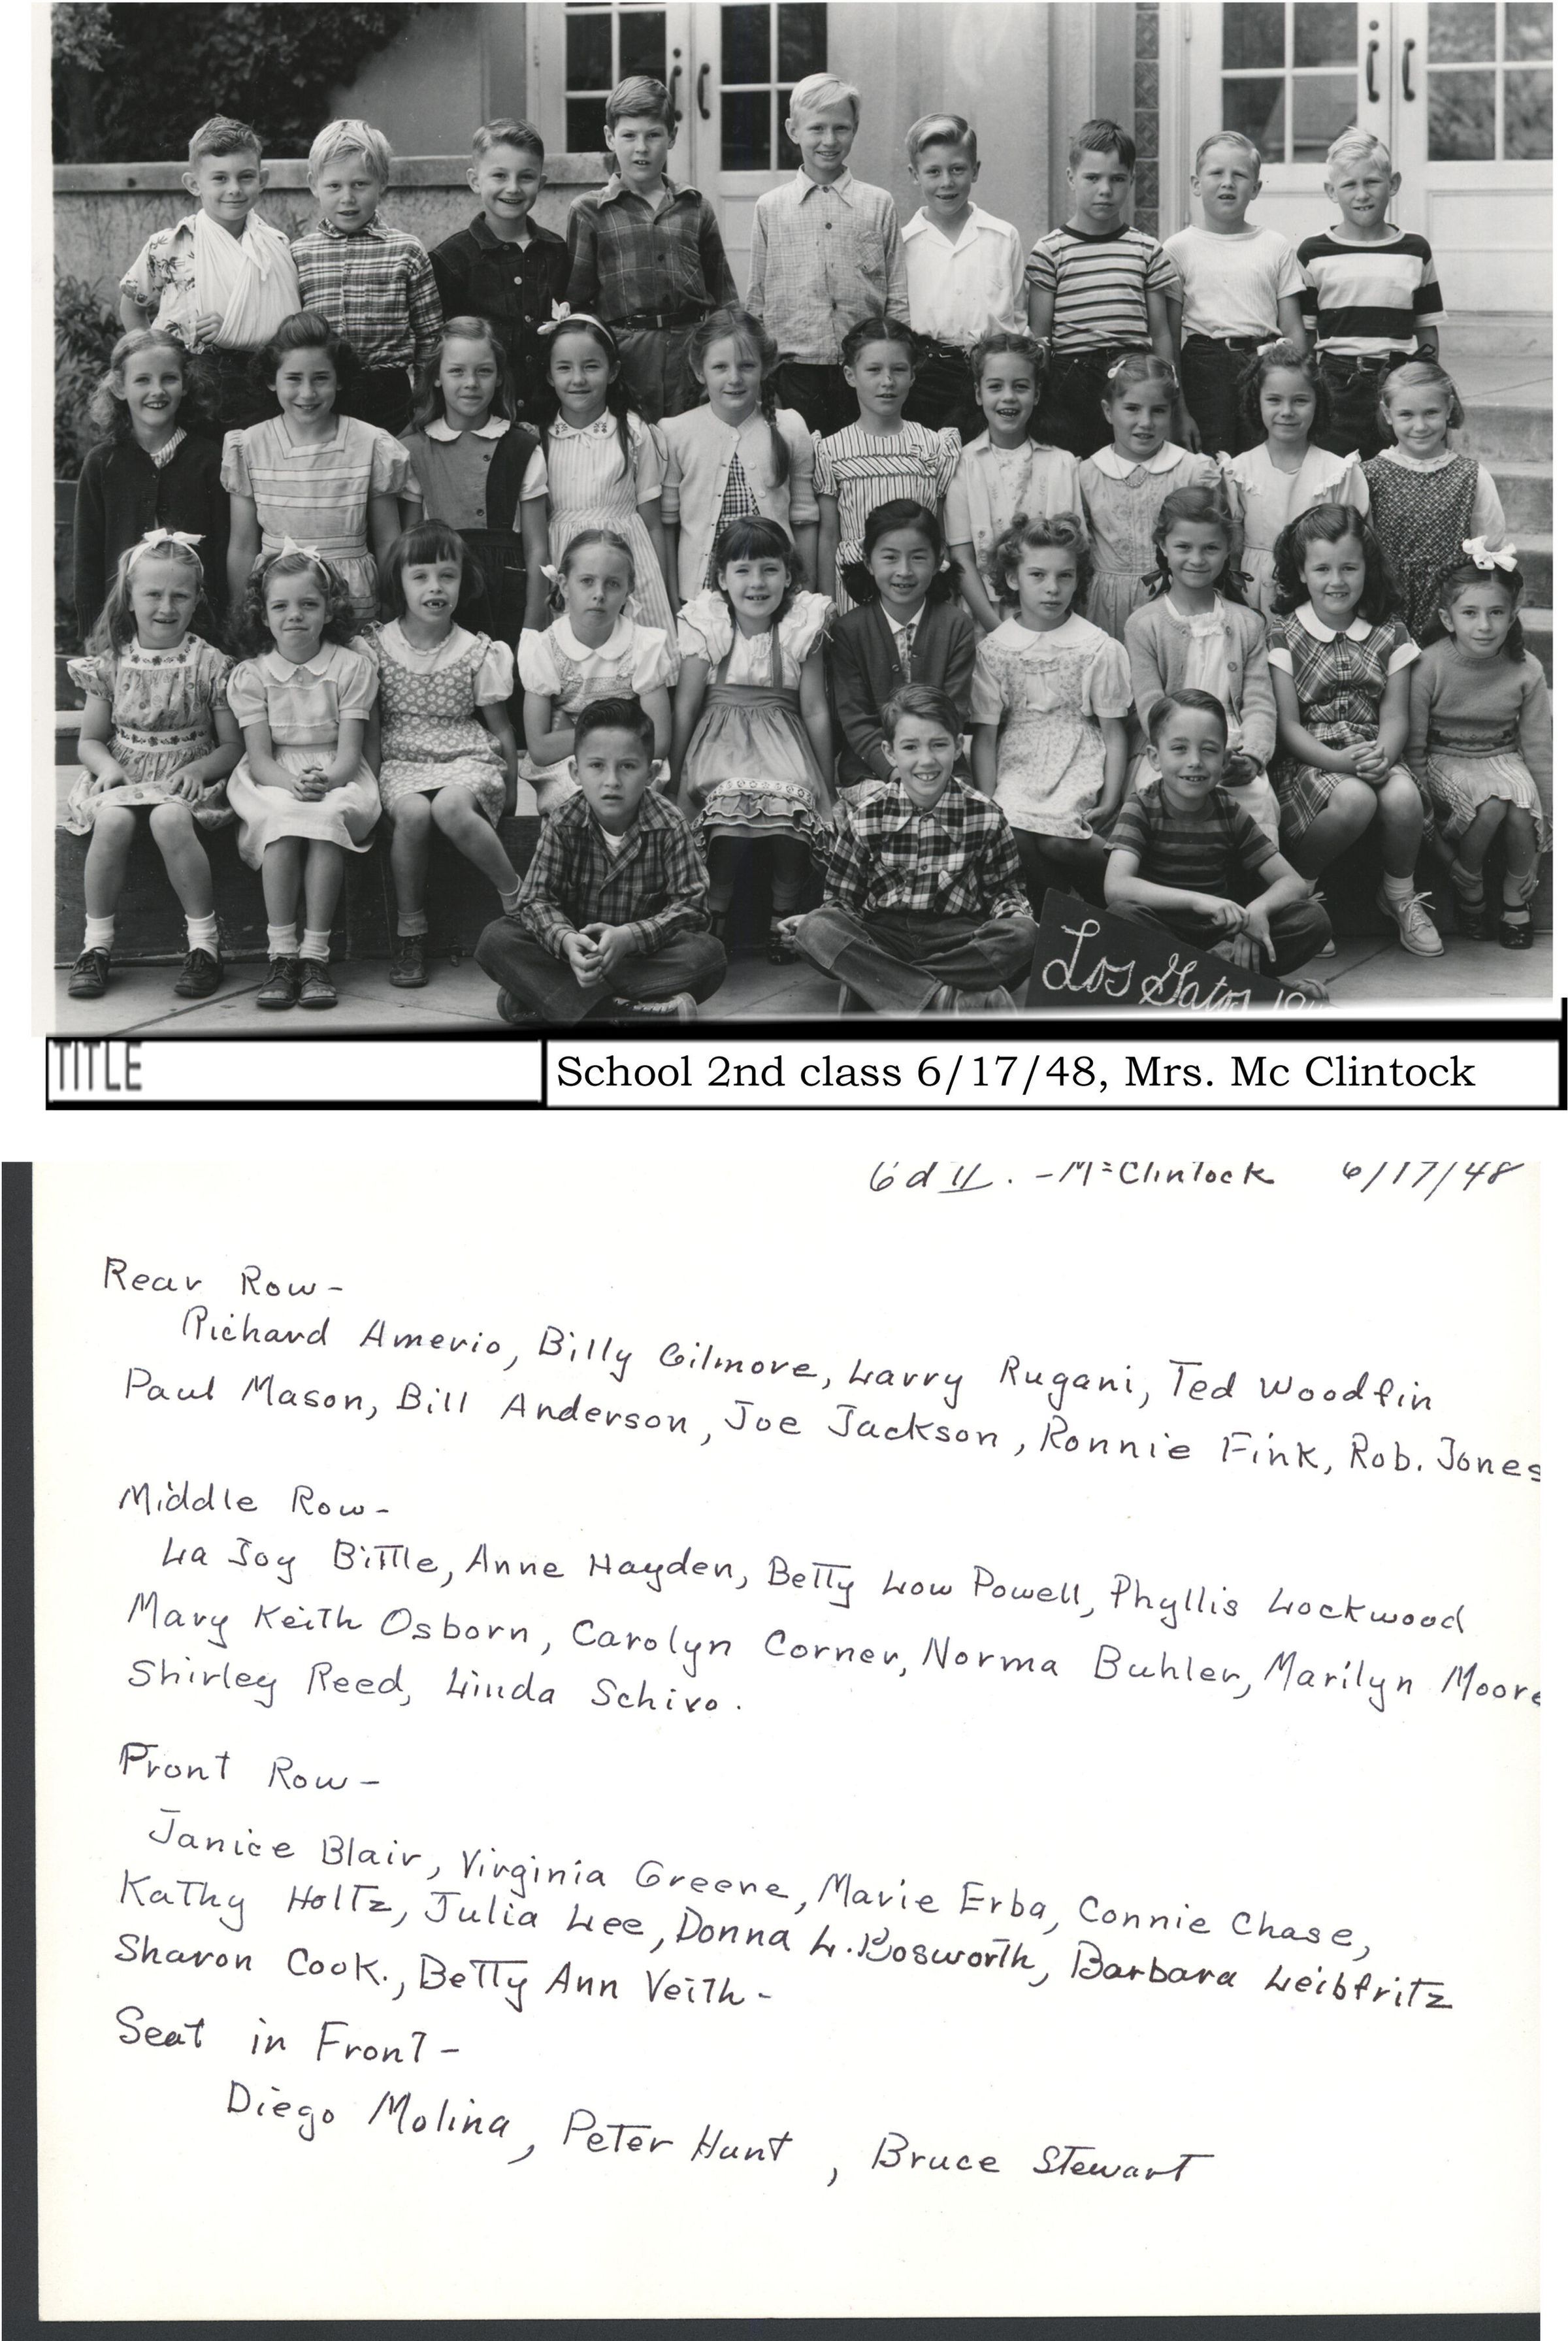 Los Gatos
TITLE
School 2nd class 6/17/48, Mrs. Mc Clintock
Gd II. - Mc Clintock 6/17/48
Rear Row -
Richard Amerio, Billy Gilmore, Larry Rugani, Ted Woodfin
Paul Mason, Bill Anderson, Joe Jackson, Ronnie Fink, Rob. Jones
Middle Row -
La Joy Bittle, Anne Hayden, Betty Low Powell, Phyllis Lockwood
Mary Keith Osborn, Carolyn Corner, Norma Buhler, Marilyn Moore
Shirley Reed, Linda Schiro.
Front Row -
Janice Blair, Virginia Greene, Marie Erba, Connie Chase,
Kathy Holtz, Julia Lee, Donna L. Bosworth, Barbara Leibfritz
Sharon Cook., Betty Ann Veith -
Seat in Front -
Diego Molina, Peter Hunt, Bruce Stewart